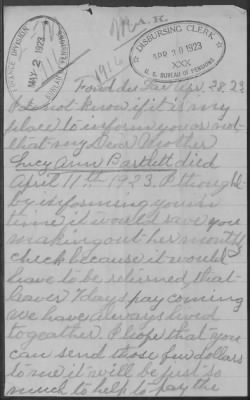 FINANCE DIVISION
MAY 2 1923
DISBURSING CLERK
APR 30 1923
XXX
U. S. BUREAU OF PENSIONS
Mrs. H.
1916
Fond du Lac Apr. 28. 23
I do not know if it is my
place to inform you or not
that my Dear Mother
Lucy Ann Bartlett died
April 11th 1923. I thought
by informing you in
time it would save you
making out her monthly
check because it would
have to be returned, that
leaves 7 days pay coming
we have always lived
togeather. I hope that you
can send those few dollars
to me it will be just so
much to help to pay the